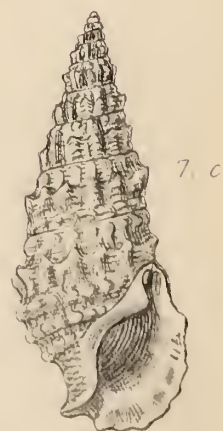 7, c